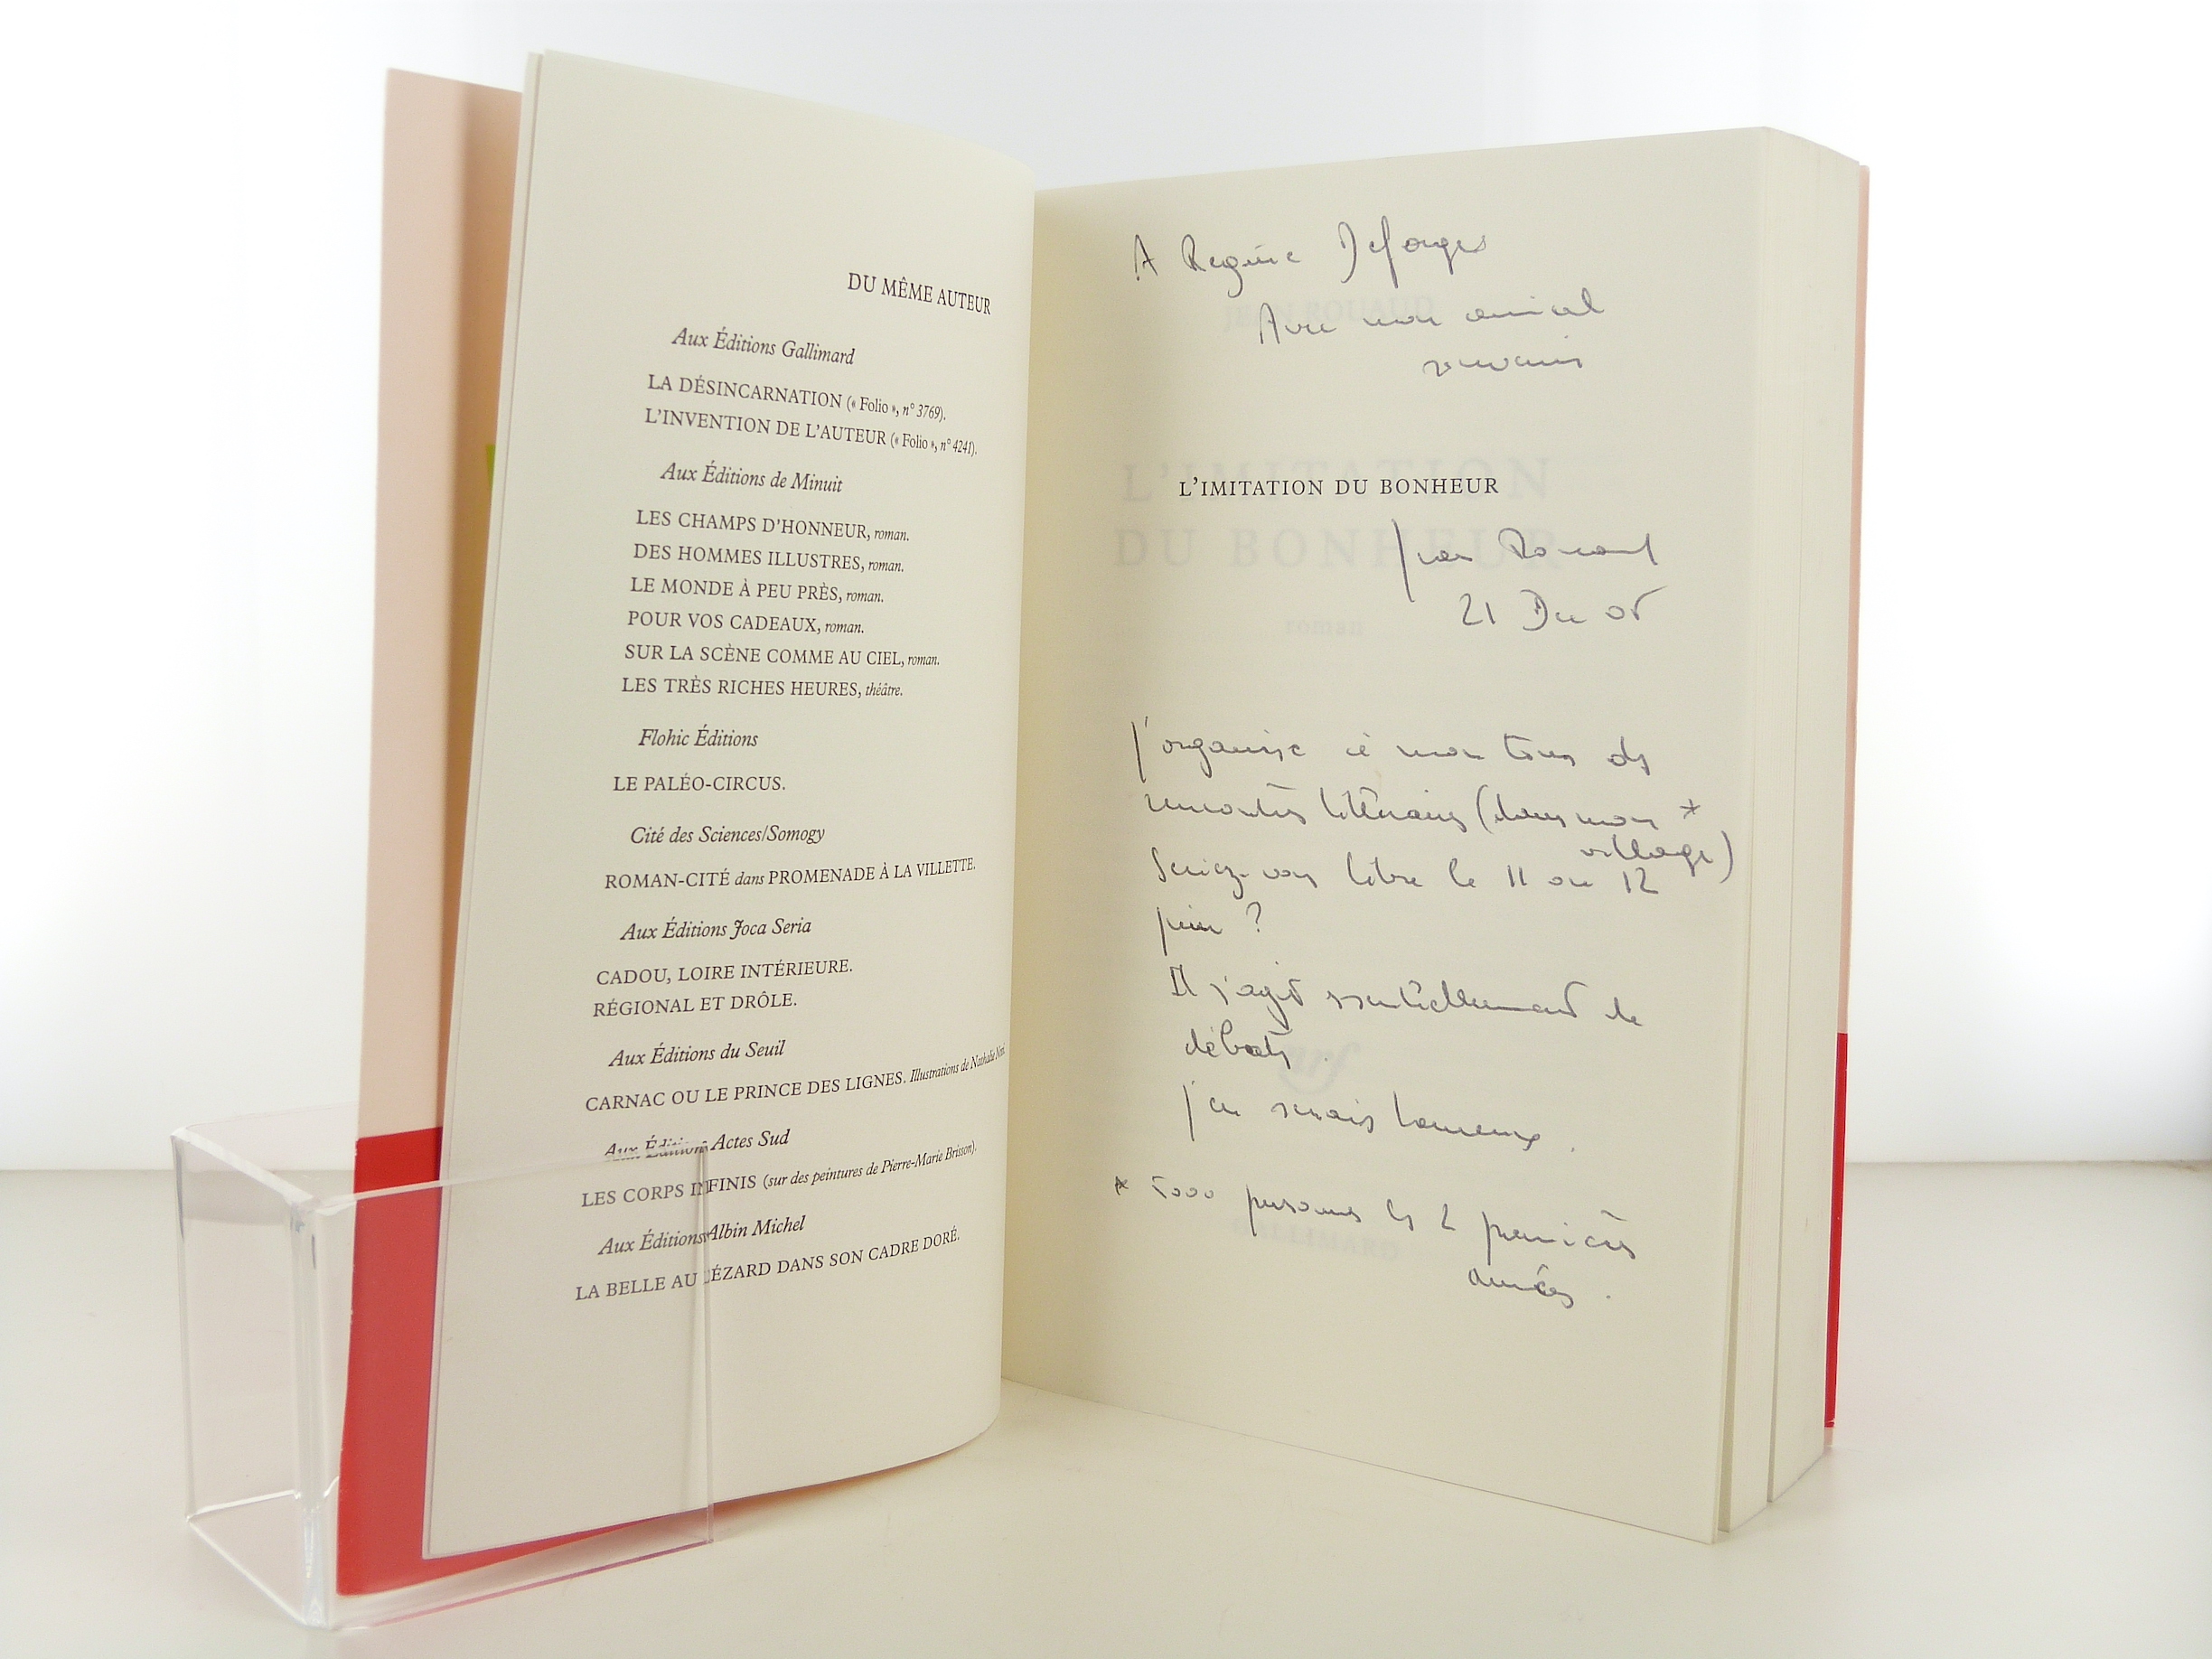 DU MÊME AUTEUR
Aux Éditions Gallimard
LA DÉSINCARNATION (« Folio », n° 3769).
L'INVENTION DE L'AUTEUR (« Folio », n° 4241).
Aux Éditions de Minuit
LES CHAMPS D'HONNEUR, roman.
DES HOMMES ILLUSTRES, roman.
LE MONDE À PEU PRÈS, roman.
POUR VOS CADEAUX, roman.
SUR LA SCÈNE COMME AU CIEL, roman.
LES TRÈS RICHES HEURES, théâtre.
Flohic Éditions
LE PALÉO-CIRCUS.
Cité des Sciences/Somogy
ROMAN-CITÉ dans PROMENADE À LA VILLETTE.
Aux Éditions Joca Seria
CADOU, LOIRE INTÉRIEURE.
RÉGIONAL ET DRÔLE.
Aux Éditions du Seuil
CARNAC OU LE PRINCE DES LIGNES. Illustrations de Nathalie
Aux Éditions Actes Sud
LES CORPS INFINIS (sur des peintures de Pierre-Marie Brisson).
Aux Éditions Albin Michel
LA BELLE AU LÉZARD DANS SON CADRE DORÉ.
A Régine Deforges
Avec mon amical
souvenir
JEAN ROUAUD
L'IMITATION DU BONHEUR
L'IMITATION
DU BONHEUR
Jean Rouaud
21 Dec 05
roman
J'organise à mon tour des
rencontres littéraires (dans mon *
village)
Seriez-vous libre le 11 ou 12
juin ?
Il s'agit essentiellement de
débats.
nrf
J'en serais heureux.
* 5000 personnes les 2 premières
années.
GALLIMARD